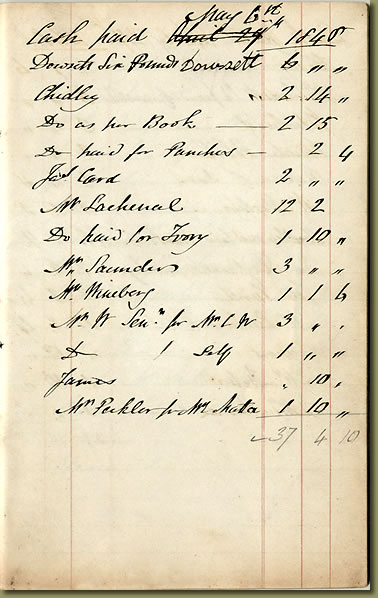 May 6th
Cash paid April 29th 1848
Dowsett Six Pounds Dowsett 6 " "
Chidley " 2 14 "
Do as per Book — 2 15
Do paid for Punches — 2 4
Jas Card 2 " "
Mr Lachenal 12 2
Do paid for Ivory 1 10 "
Mrs Saunders 3 " "
Mr Wineberg 1 1 6
Mr W Senr for Mr C W 3 " "
D 1 Self 1 " "
James " 10 "
Mr Peckler for Mr Matta 1 10 "
37 4 10